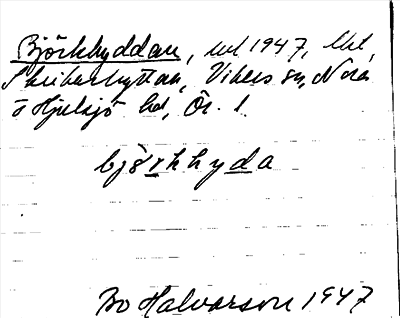 Björkhyddan, utl 1947, lht,
Skrikarhyttan, Vikers sn, Nora
o Hjulsjö hd, Ör. l.
björkhyda
Bo Halvarson 1947